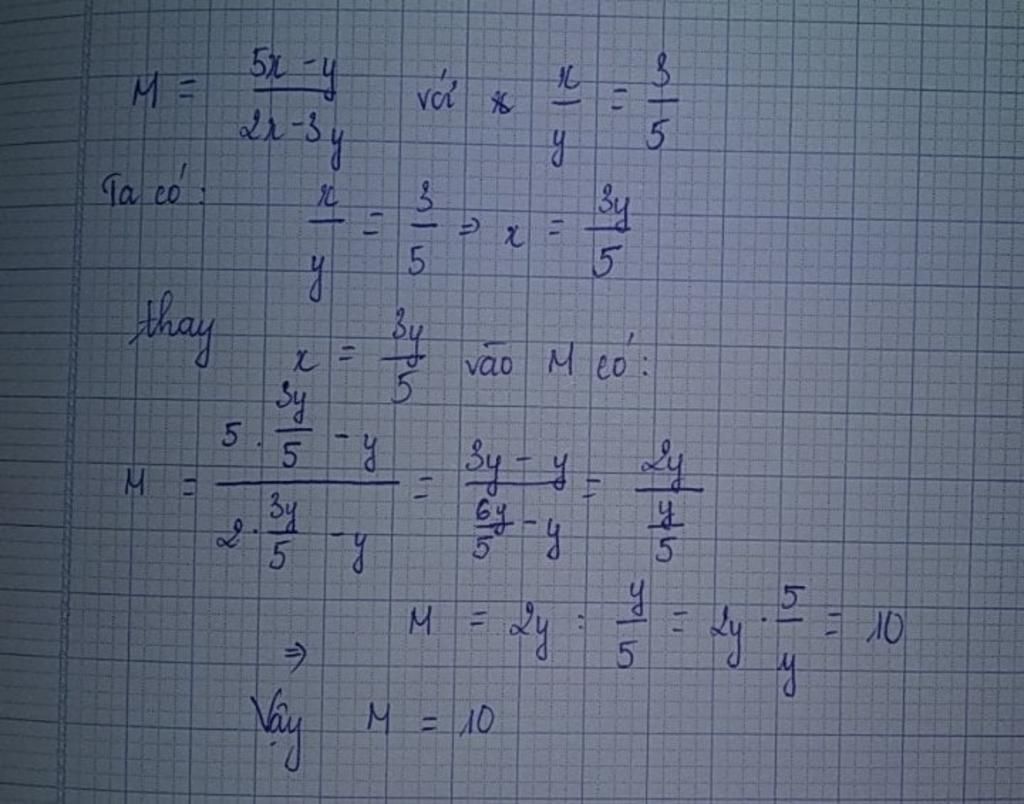 M = \frac{5x - y}{2x - 3y} với \frac{x}{y} = \frac{3}{5}
Ta có: \frac{x}{y} = \frac{3}{5} ⇒ x = \frac{3y}{5}
thay x = \frac{3y}{5} vào M có:
M = \frac{5 . \frac{3y}{5} - y}{2 . \frac{3y}{5} - y} = \frac{3y - y}{\frac{6y}{5} - y} = \frac{2y}{\frac{y}{5}}
⇒ M = 2y : \frac{y}{5} = 2y . \frac{5}{y} = 10
Vậy M = 10